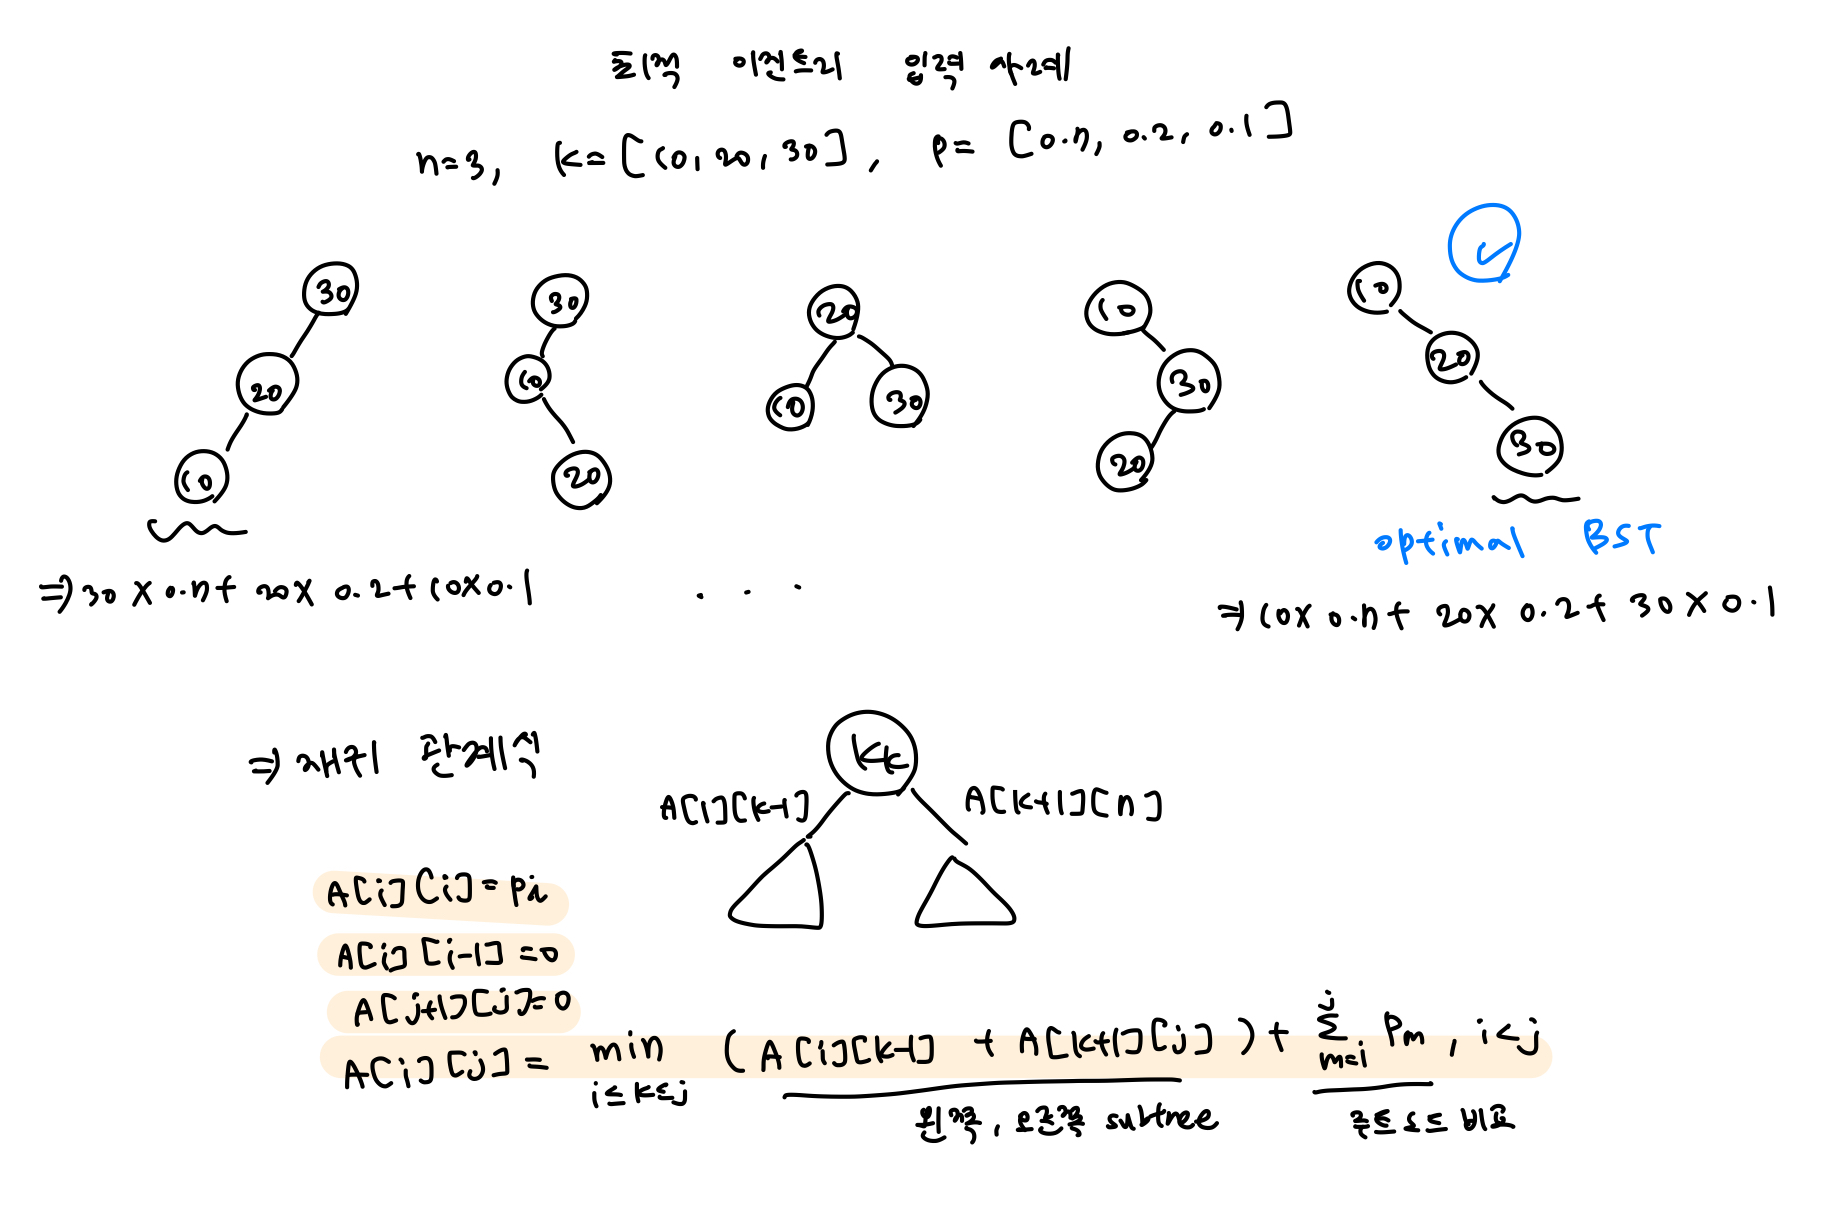 최적 이진트리 입력 사례
n=3, K=[10, 20, 30], P=[0.7, 0.2, 0.1]
30 30 20 10 10
20 10 10 30 30 20
10 20 20 30
optimal BST
⇒ 30 × 0.7 + 20 × 0.2 + 10 × 0.1 . . . ⇒ 10 × 0.7 + 20 × 0.2 + 30 × 0.1
⇒ 재귀 관계식
Kk
A[1][k-1] A[k+1][n]
A[i][i] = Pi
A[i][i-1] = 0
A[j+1][j] = 0
A[i][j] = min i≤k≤j (A[i][k-1] + A[k+1][j]) + ∑ m=i j Pm, i<j
왼쪽, 오른쪽 subtree 루트노드 비용